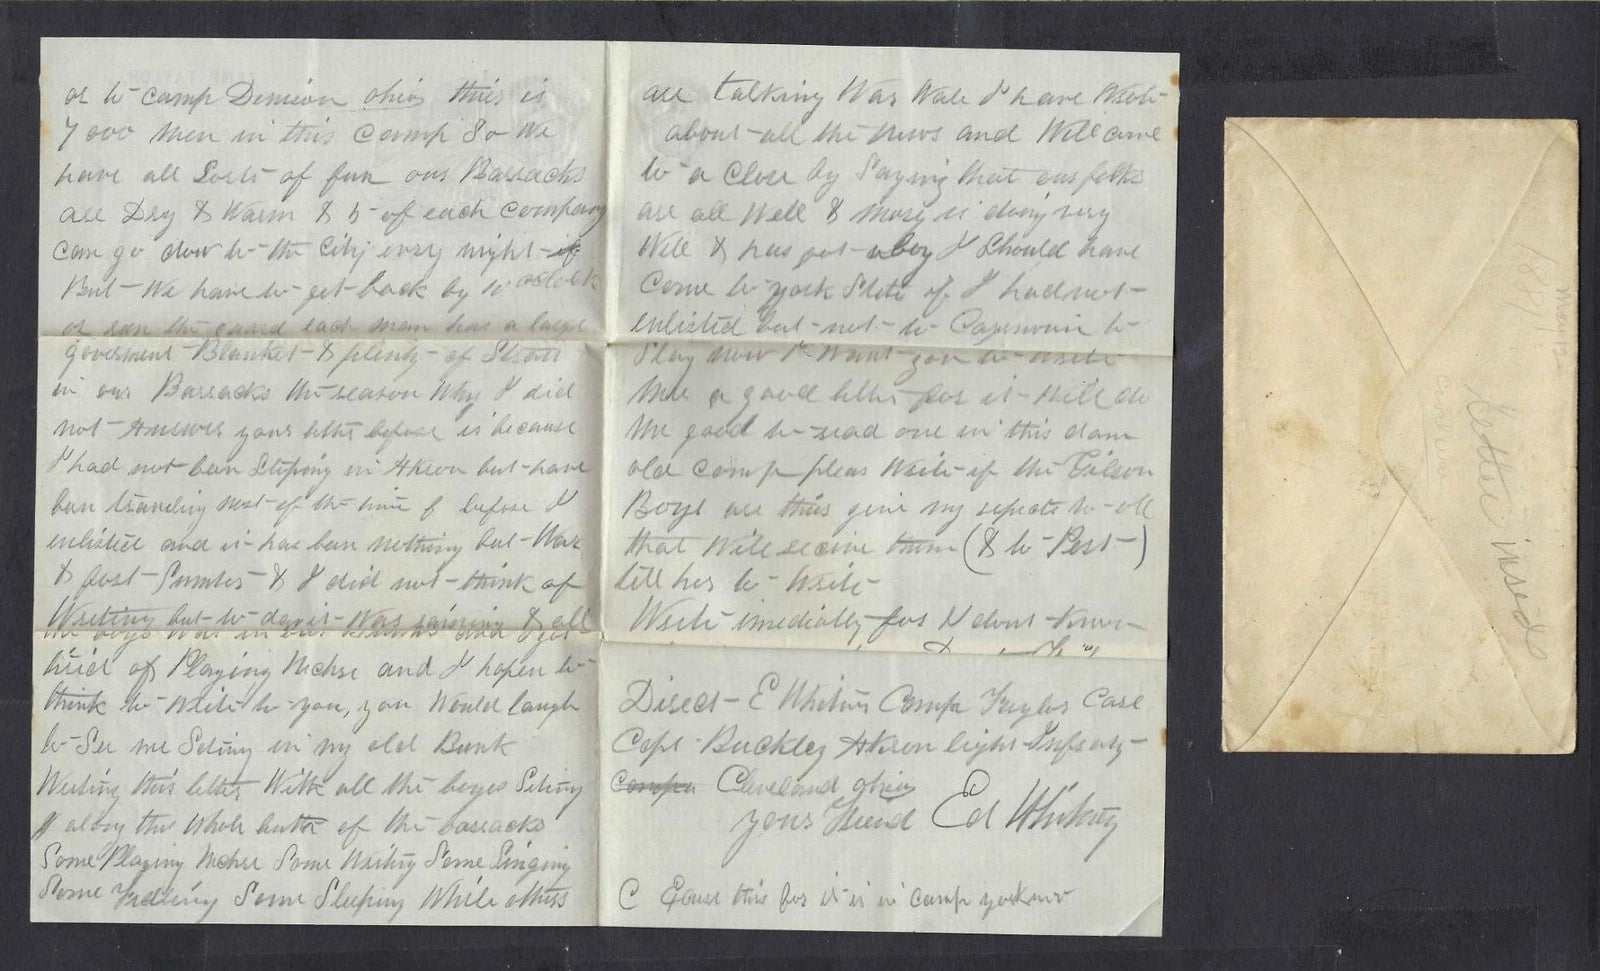 or to camp Denison ohio thire is
7000 men in this camp So We
have all Sorts of fun our Barracks
are Dry & Warm & 5 of each company
can go dow to the City every night if
But We have to get back by 10 oclock
or run the guard each man has a large
goverment Blanket & plenty of Straw
in our Barracks the reason Why I did
not Answer your letter before is because
I had not ben Stoping in Akron but have
ben traveling most of the time before I
enlisted and it has ben nothing but War
& fort Sumter & I did not think of
Writing but to day it was raining & all
the boys was in and I got
tired of Playing Uchre and I hapen to
think to Write to you, you Would laugh
to See me Seting in my old Bunk
Writing this letter With all the boyes Seting
along the Whole of the barracks
Some Playing Uchre Some Writing Some Singing
Some Fidling Some Sleeping While others
are talking War Wale I have Wrote
about all the news and Will come
to a Close by Saying that our folks
are all Well & is doing very
Well & has got a boy I Should have
Come to york State if I had not
enlisted but not to to
Stay now I Want you to write
me a good letter for it Will do
me good to read one in this dam
old camp pleas Write if the Gilson
Boys are thire give my respects to all
that Will receive them (& to Pert)
tell her to Write
Write imediatly for I dont know
Direct E Whitney Camp Taylor Care
Capt Buckley Akron light Infantry
Compa Cleveland ohio
your Friend Ed Whitney
C Excuse this for it is in camp you know
1891
Mar 12
Letter inside